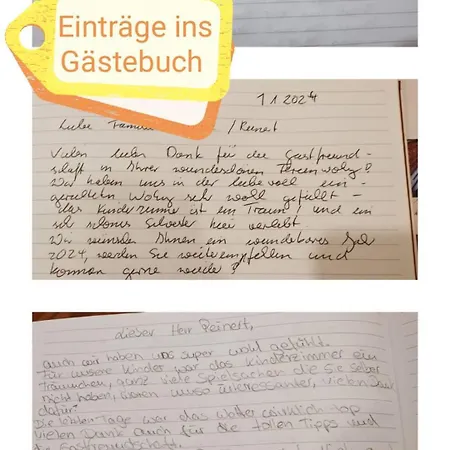 Einträge ins
Gästebuch
1 1 2024
Liebe Familie / Reinert
Vielen lieben Dank für die Gastfreund-
schaft in Ihrer wunderschönen Ferienwohng!
Wir haben uns in der liebevoll ein-
gerichteten Wohng sehr wohl gefühlt -
das Kinderzimmer ist ein Traum! und ein
sehr schönes Silvester hier verlebt
Wir wünschen Ihnen ein wunderbares
2024, werden Sie weiterempfehlen und
kommen gerne wieder!
Lieber Herr Reinert,
auch wir haben uns super wohl gefühlt.
Für unsere Kinder war das Kinderzimmer ein
Träumchen, ganz viele Spielsachen die Sie selber
nicht haben, waren umso interessanter, vielen
dafür
Die letzten Tage war das Wetter wirklich top
Vielen Dank auch für die tollen Tipps und
Gastfreundschaft.